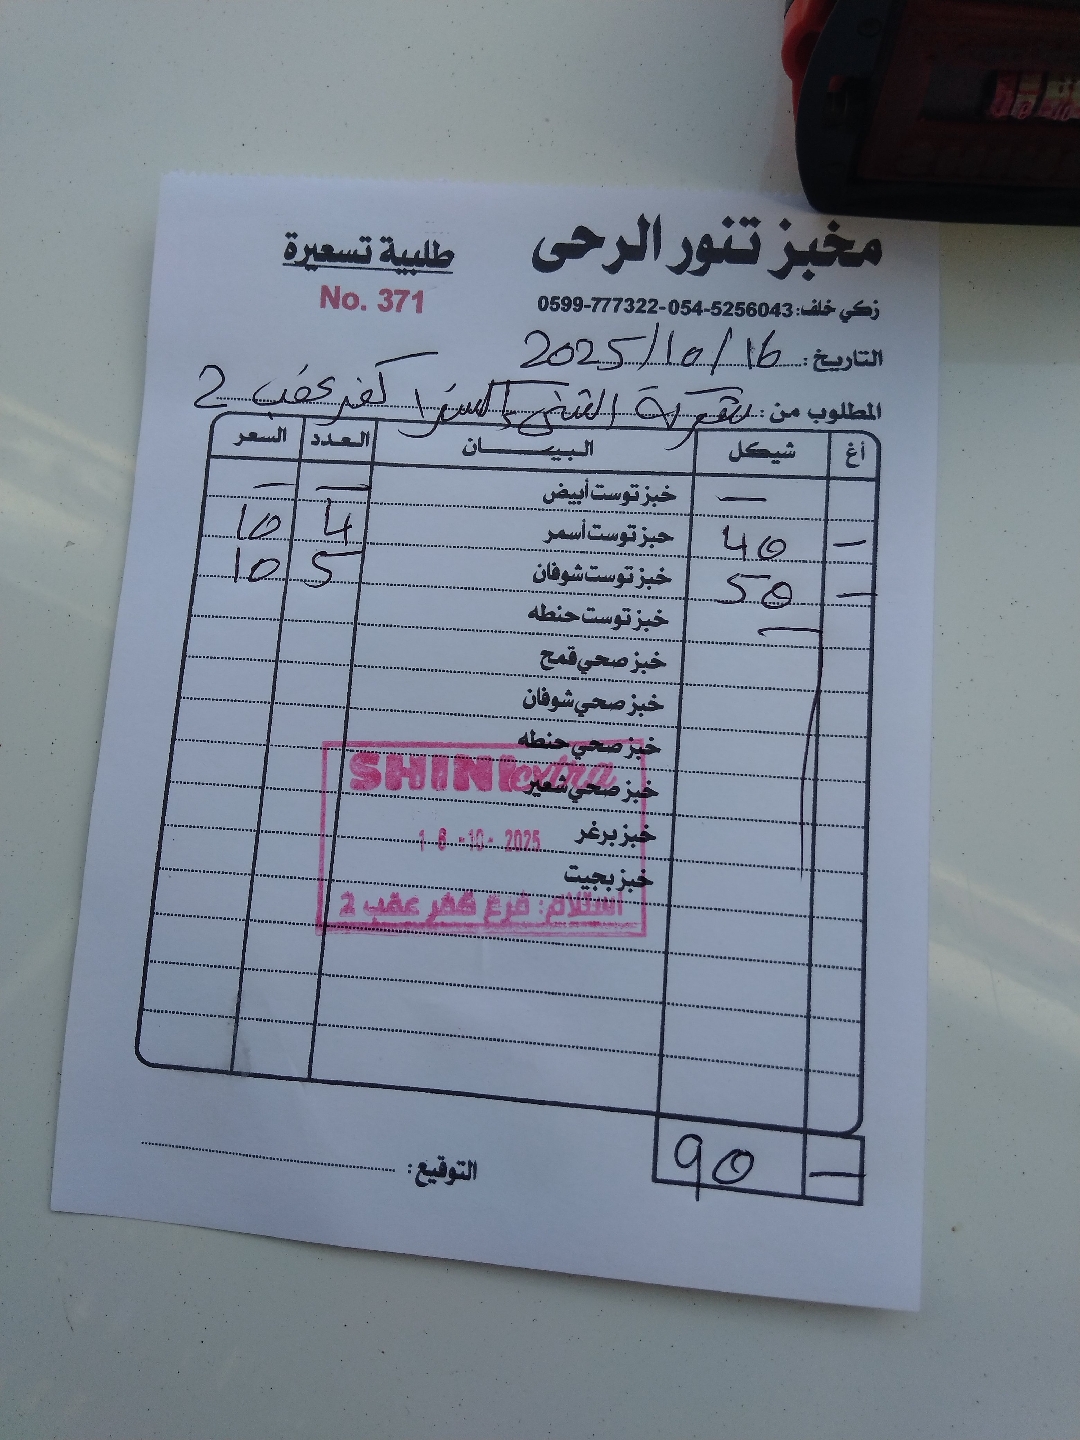 مخبز تنور الرحى
طلبية تسعيرة
No. 371
زكي خلف: 054-5256043-0599-777322
التاريخ: 2025/10/16
المطلوب من: شركة الشني إكسترا كفر عقب 2
أغ شيكل البيـــــان العدد السعر
خبز توست أبيض — — —
— 40 خبز توست أسمر 4 10
— 50 خبز توست شوفان 5 10
خبز توست حنطه
خبز صحي قمح
خبز صحي شوفان
خبز صحي حنطه
SHINI extra
خبز صحي شعير
خبز برغر
16 -10- 2025
خبز بجيت
استلام: فرع كفر عقب 2
— 90
التوقيع: